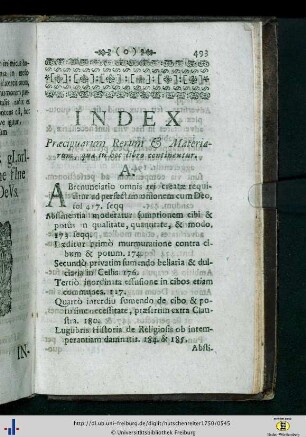 ( 0 )
493
INDEX
Præcipuarum Rerum & Materia-
rum, quæ in hoc libro continentur.
A.
Abrenunciatio omnis rei creatæ requi-
ritur ad perfectam unionem cum Deo,
fol 417. seqq
Abstinentia moderatur sumptionem cibi &
potus in qualitate, quantitate, & modo.
173 seqq.
Læditur primò murmuratione contra ci-
bum & potum. 174.
Secundò privatim fomendo bellaria & dul-
ciaria in Cellis. 176.
Tertiò inordinata effusione in cibos etiam
communes. 177.
Quartò interdiu sumendo de cibo & po-
tu sine necessitate, præsertim extra Clau-
stra. 180.
Lugubris Historia de Religiosis ob intem-
perantiam damnatis. 184. & 185.
Absti-
IN-
http://dl.ub.uni-freiburg.de/diglit/hatschenreiter1750/0545
© Universitätsbibliothek Freiburg